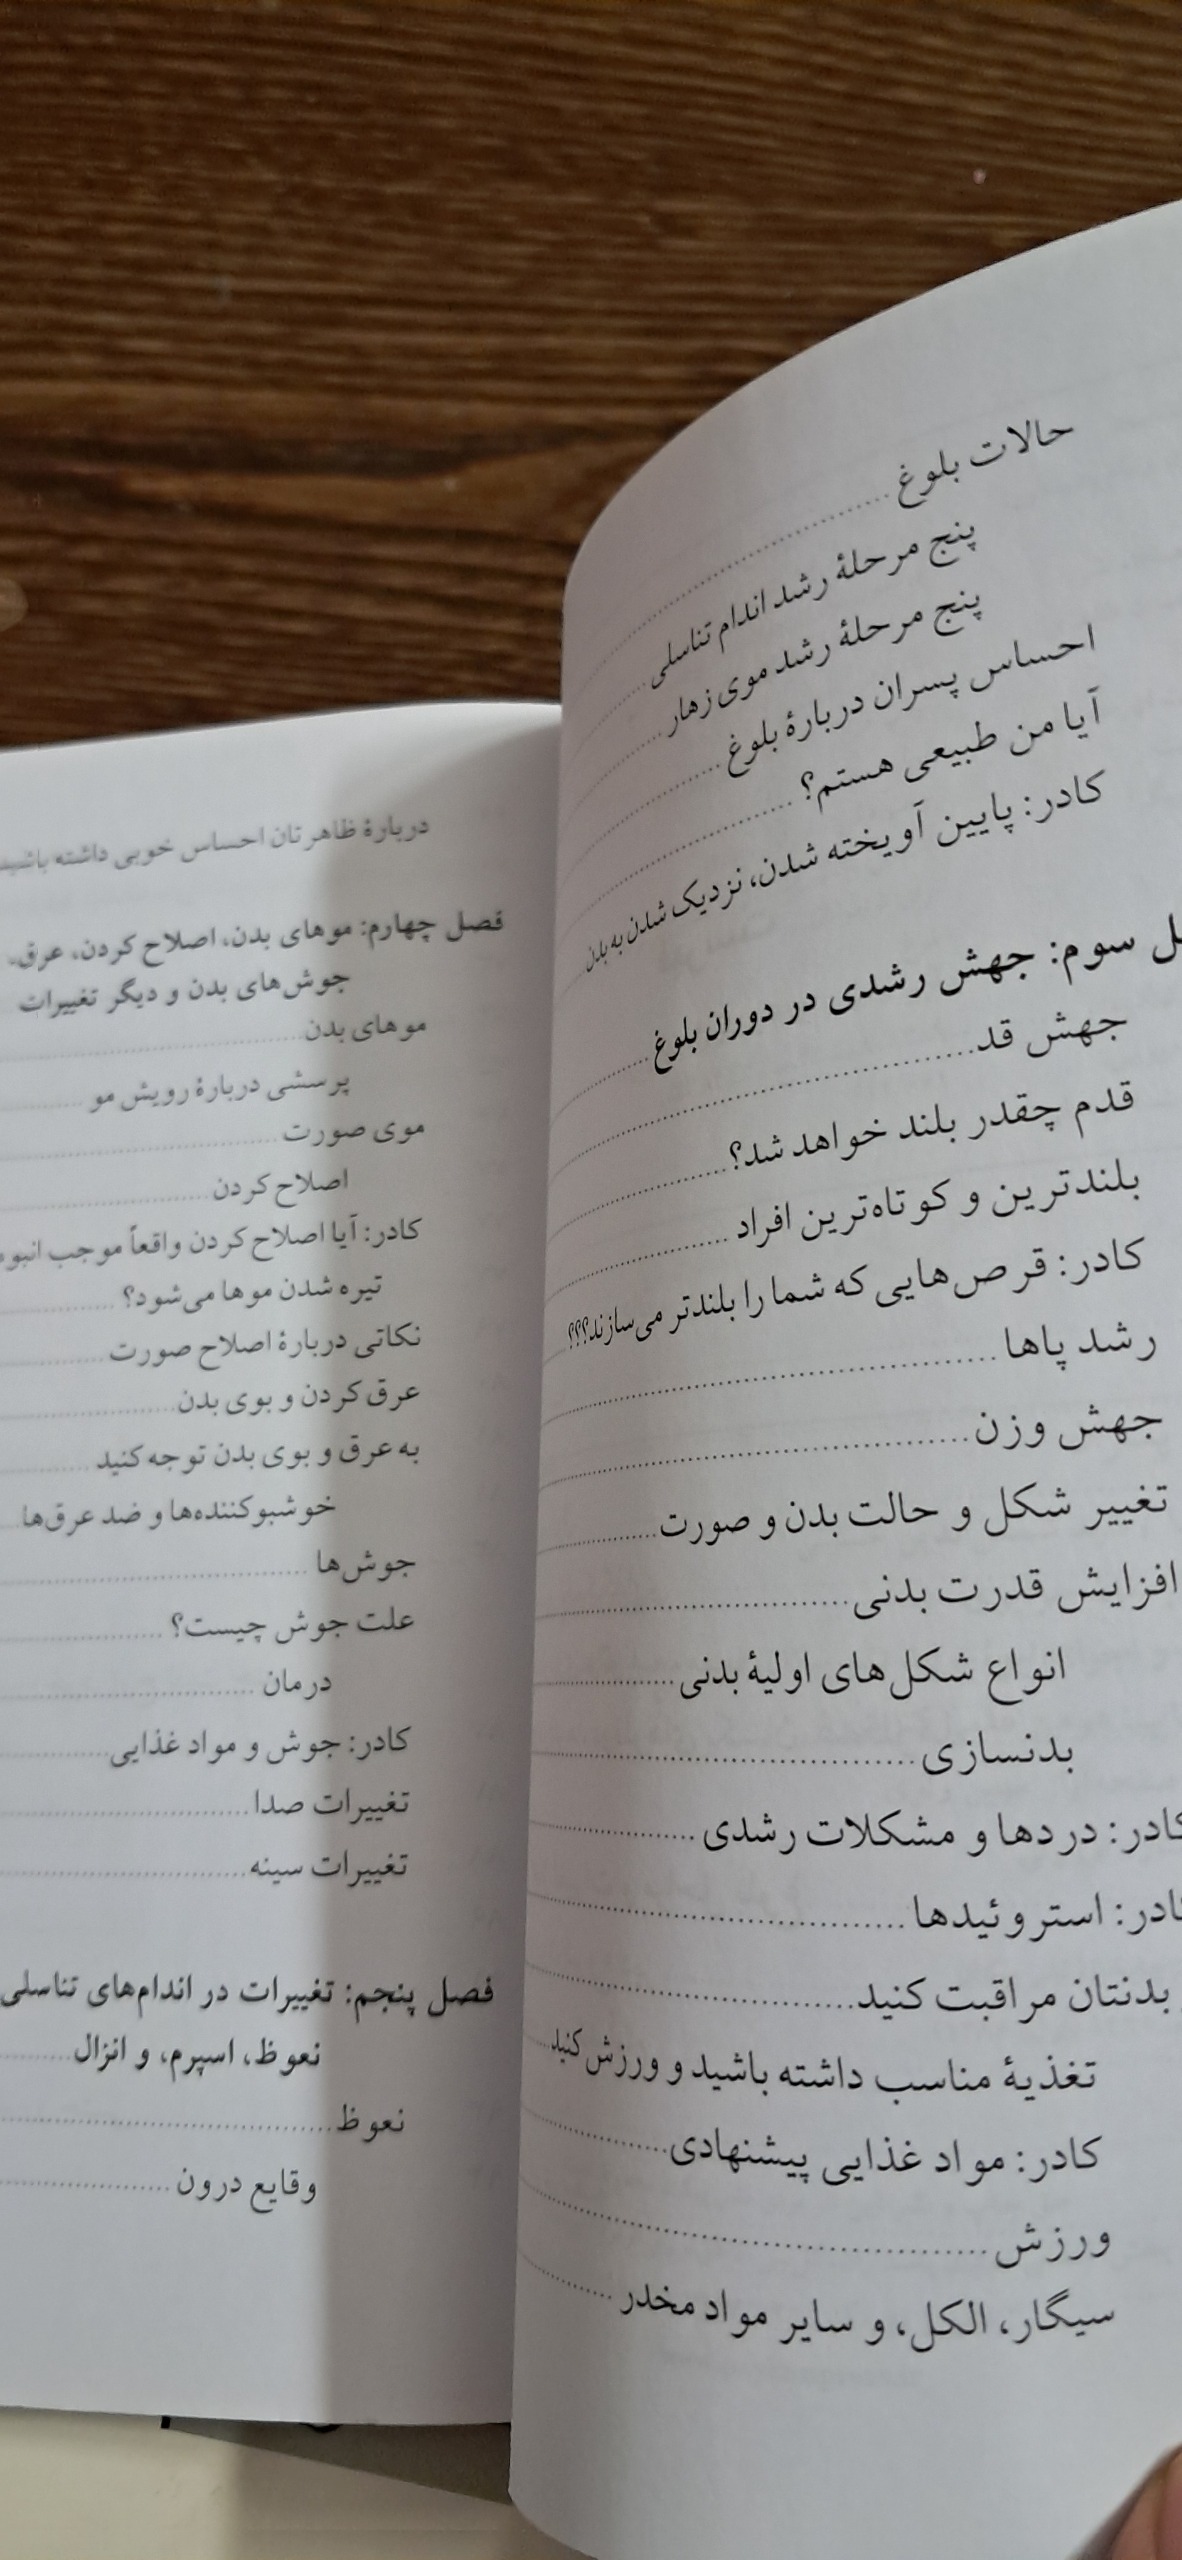 حالات بلوغ
پنج مرحلهٔ رشد اندام تناسلی
پنج مرحلهٔ رشد موی زهار
احساس پسران دربارهٔ بلوغ
آیا من طبیعی هستم؟
کادر: پایین آویخته شدن، نزدیک شدن به بدن
سوم: جهش رشدی در دوران بلوغ
جهش قد
قدم چقدر بلند خواهد شد؟
بلندترین و کوتاه‌ترین افراد
کادر: قرص‌هایی که شما را بلندتر می‌سازند؟؟؟
رشد پاها
جهش وزن
تغییر شکل و حالت بدن و صورت
افزایش قدرت بدنی
انواع شکل‌های اولیهٔ بدنی
بدنسازی
کادر: دردها و مشکلات رشدی
کادر: استروئیدها
بدنتان مراقبت کنید
تغذیهٔ مناسب داشته باشید و ورزش کنید
کادر: مواد غذایی پیشنهادی
ورزش
سیگار، الکل، و سایر مواد مخدر
دربارهٔ ظاهرتان احساس خوبی داشته باشید
فصل چهارم: موهای بدن، اصلاح کردن، عرق،
جوش‌های بدن و دیگر تغییرات
موهای بدن
پرسشی دربارهٔ رویش مو
موی صورت
اصلاح کردن
کادر: آیا اصلاح کردن واقعاً موجب
تیره شدن موها می‌شود؟
نکاتی دربارهٔ اصلاح صورت
عرق کردن و بوی بدن
به عرق و بوی بدن توجه کنید
خوشبوکننده‌ها و ضد عرق‌ها
جوش‌ها
علت جوش چیست؟
درمان
کادر: جوش و مواد غذایی
تغییرات صدا
تغییرات سینه
فصل پنجم: تغییرات در اندام‌های تناسلی
نعوظ، اسپرم، و انزال
نعوظ
وقایع درون